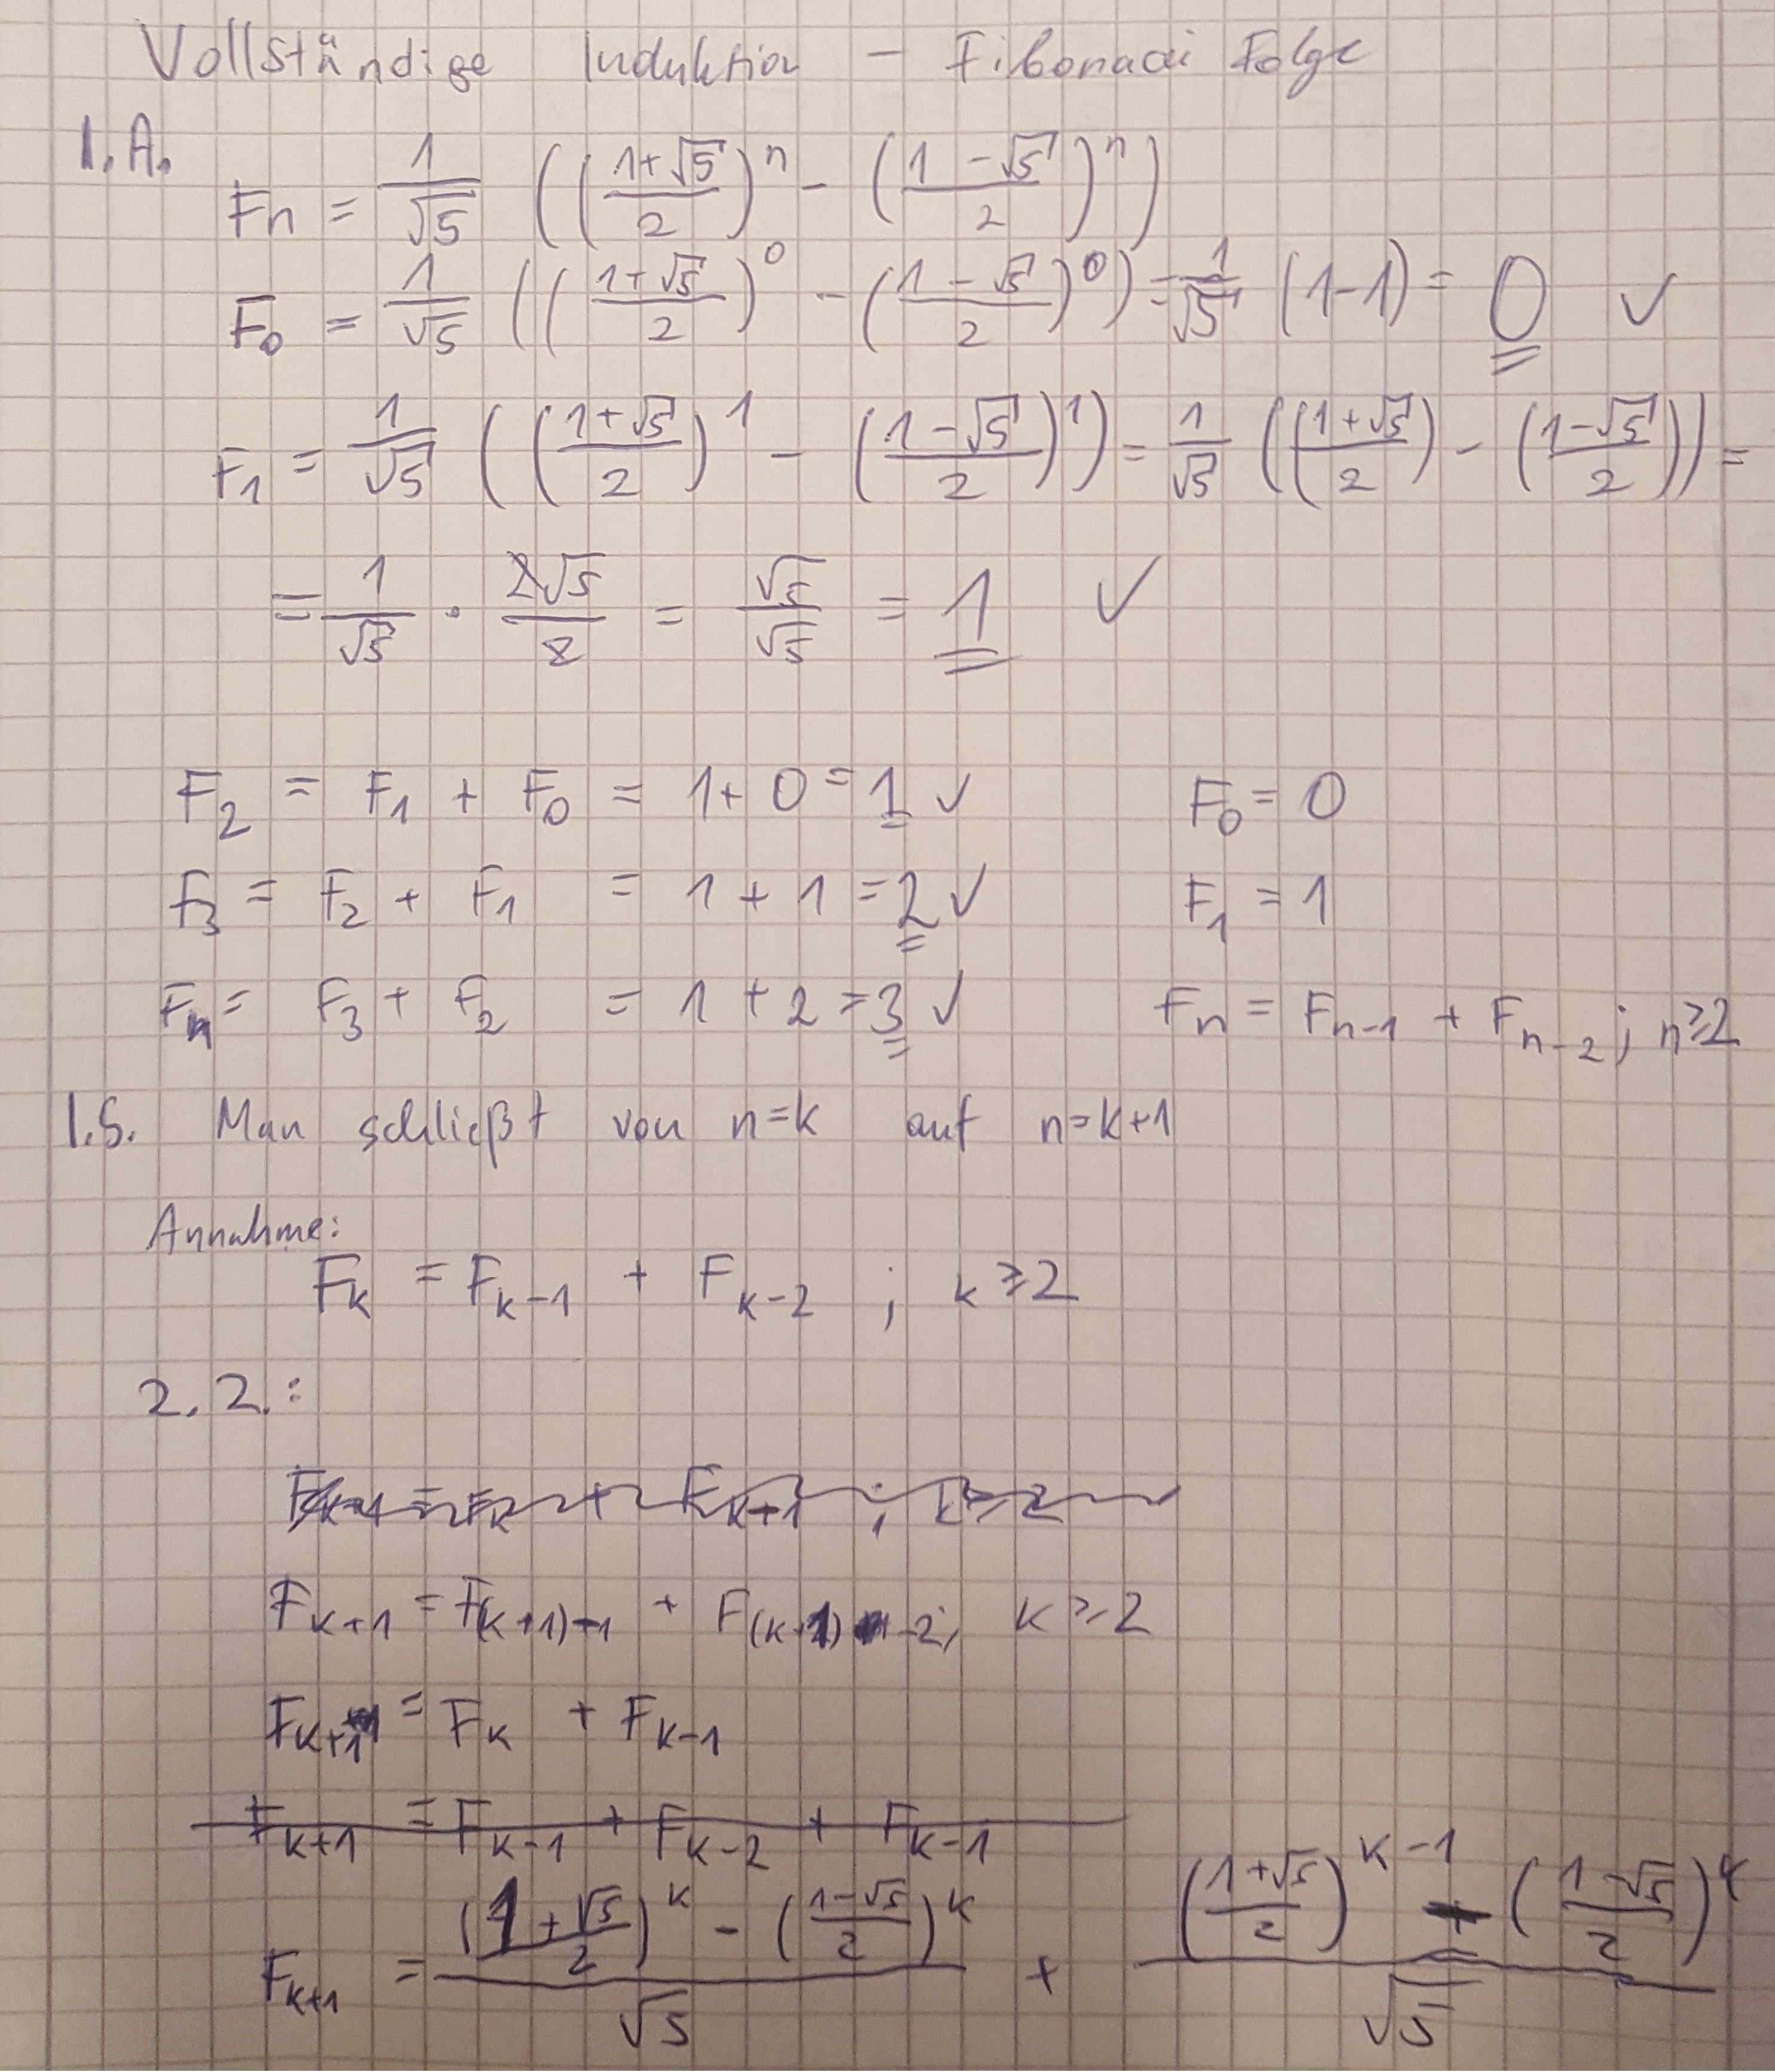 Vollständige Induktion – Fibonacci Folge
I.A.
Fn = 1/√5 (((1+√5)/2)^n - ((1-√5)/2)^n)
F₀ = 1/√5 (((1+√5)/2)^0 - ((1-√5)/2)^0) = 1/√5 (1-1) = 0 ✓
F₁ = 1/√5 (((1+√5)/2)^1 - ((1-√5)/2)^1) = 1/√5 (((1+√5)/2) - ((1-√5)/2)) =
= 1/√5 · 2√5/2 = √5/√5 = 1 ✓
F₂ = F₁ + F₀ = 1+0 = 1 ✓ F₀ = 0
F₃ = F₂ + F₁ = 1+1 = 2 ✓ F₁ = 1
Fn = F₃ + F₂ = 1+2 = 3 ✓ Fn = Fn-1 + Fn-2; n≥2
I.S. Man schließt von n=k auf n=k+1
Annahme:
Fk = Fk-1 + Fk-2 ; k≥2
2.2.:
Fk+1 = F(k+1)-1 + F(k+1)-2; k≥2
Fk+1 = Fk + Fk-1
Fk+1 = Fk-1 + Fk-2 + Fk-1
Fk+1 = (((1+√5)/2)^k - ((1-√5)/2)^k)/√5 + (((1+√5)/2)^k-1 - ((1-√5)/2)^k)/√5